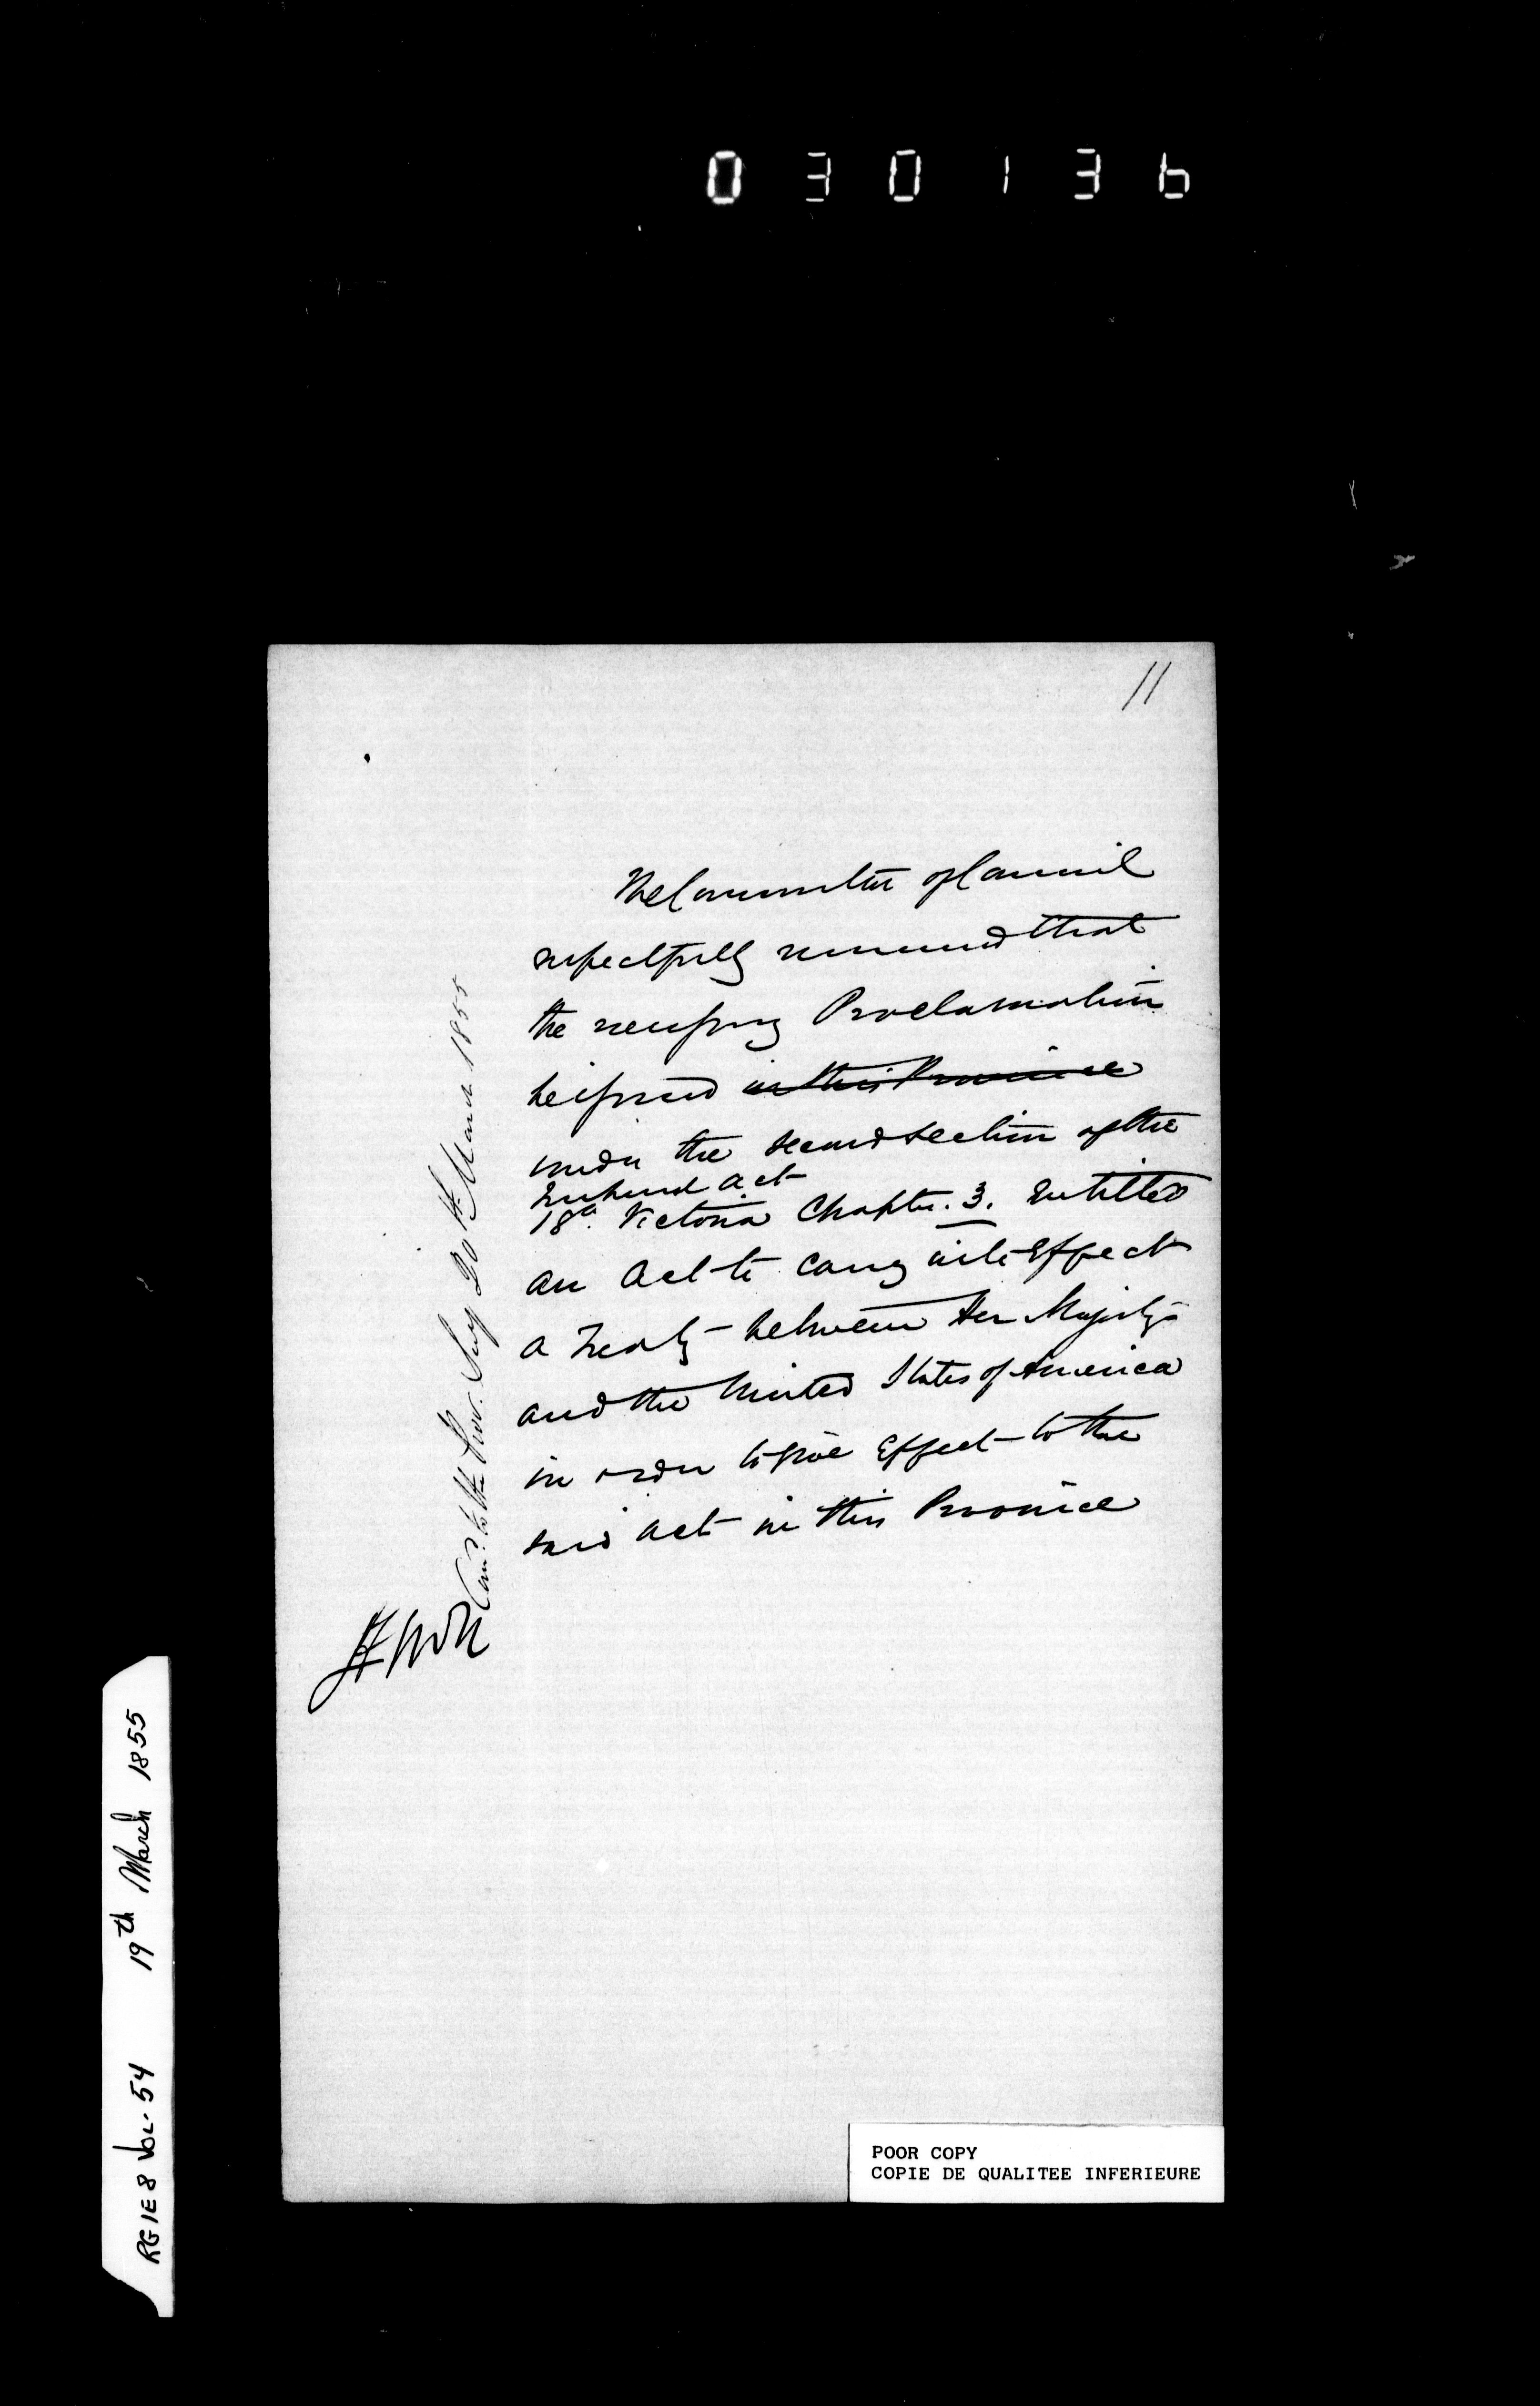 030136
11
The Committee of Council
respectfully recommend that
the necessary Proclamation
be issued in this Province
under the second section of the
Imperial Act
18a. Victoria Chapter. 3. Entitled
an Act to carry into Effect
a Treaty between Her Majesty
and the United States of America
in order to give Effect to the
said Act in this Province
to the Prov. Secy 20th March 1855
RG1E8 Vol. 54 19th March 1855
POOR COPY
COPIE DE QUALITEE INFERIEURE